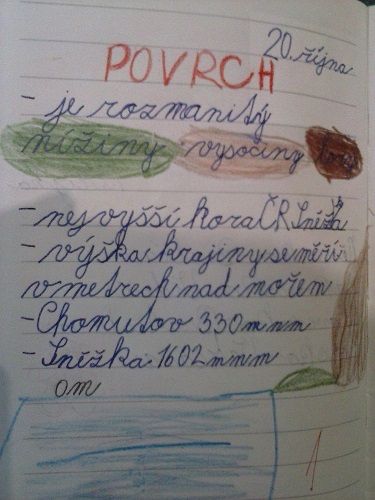 20. října
POVRCH
- je rozmanitý
nížiny vysočiny hory
- nejvyšší hora ČR Sněžka
- výška krajiny se měří
v metrech nad mořem
- Chomutov 330 m nm
- Sněžka 1602 m nm
0m
1